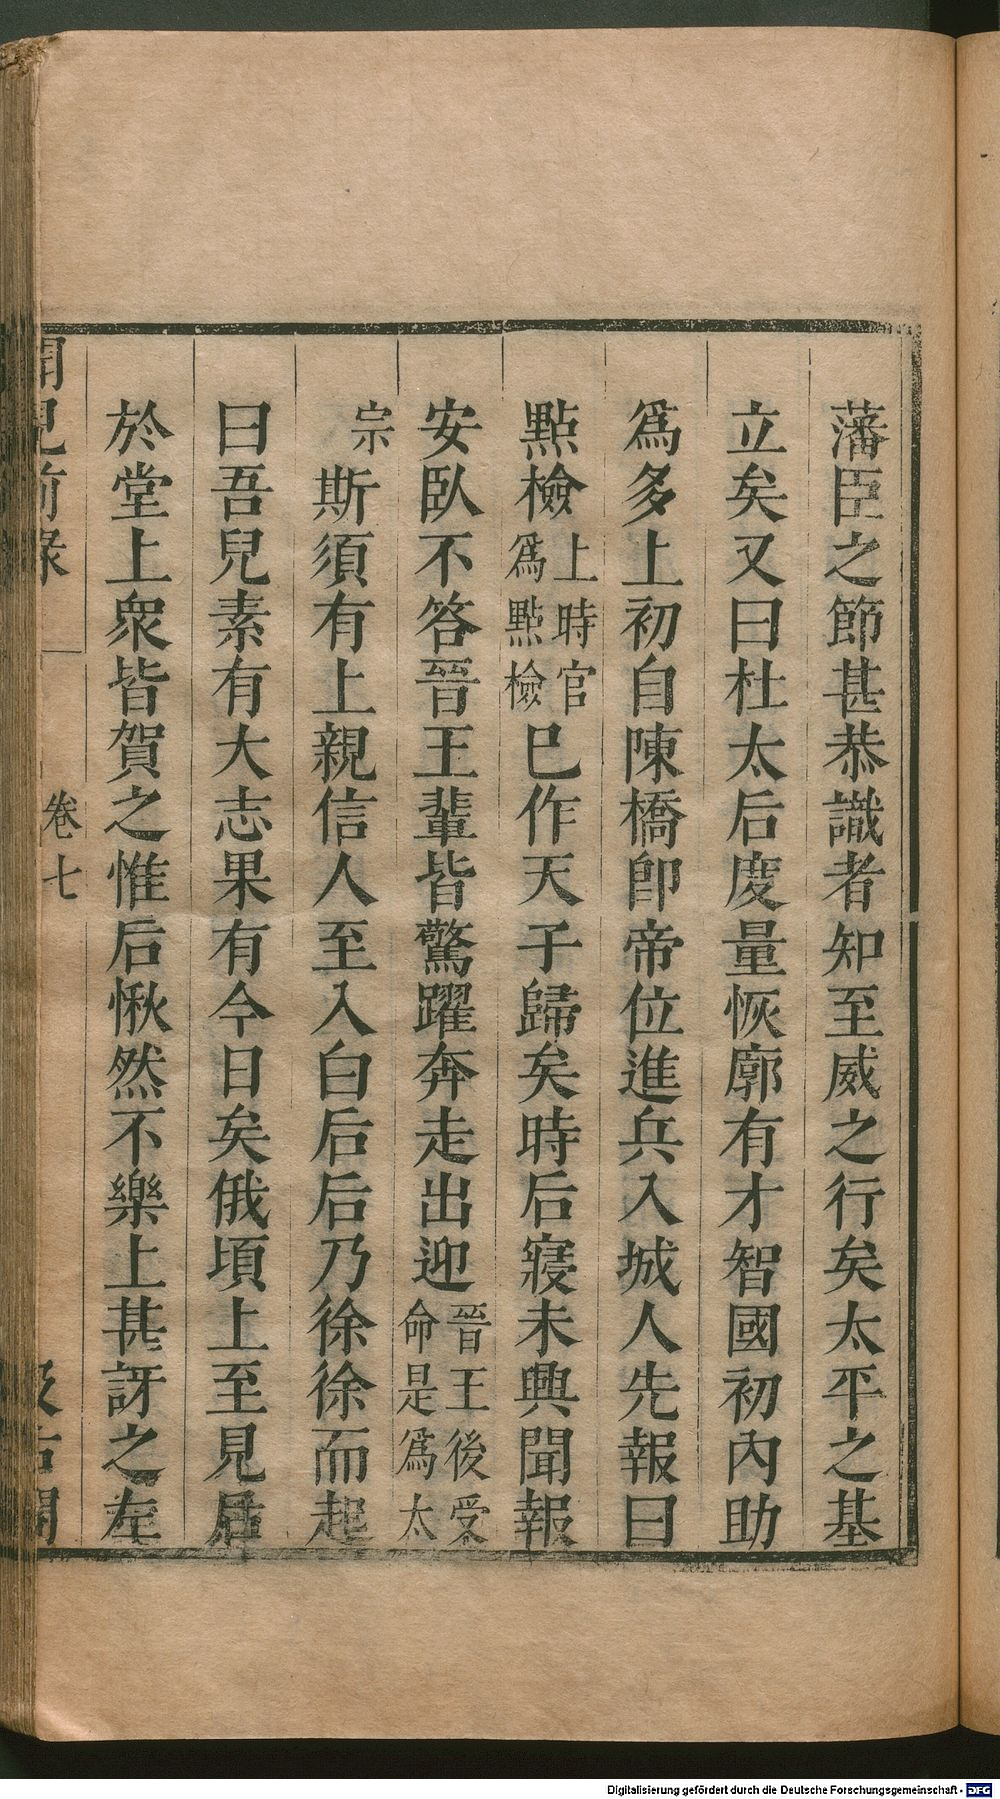 藩臣之節甚恭識者知至威之行矣太平之基
立矣又曰杜太后度量恢廓有才智國初內助
爲多上初自陳橋卽帝位進兵入城人先報曰
點檢上時官爲點檢巳作天子歸矣時后寢未興聞報
安臥不答晉王輩皆驚躍奔走出迎晉王後受命是爲太
宗斯須有上親信人至入白后后乃徐徐而起
曰吾兒素有大志果有今日矣俄頃上至見后
於堂上衆皆賀之惟后愀然不樂上甚訝之左
聞見前錄 卷七 汲古閣
Digitalisierung gefördert durch die Deutsche Forschungsgemeinschaft - DFG